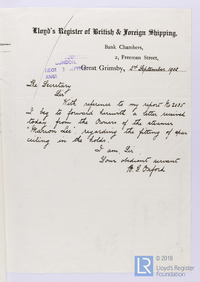 Lloyd's Register of British & Foreign Shipping.
Bank Chambers,
2, Freeman Street,
Great Grimsby, 2nd September 1902
The Secretary
Sir
With reference to my report No 2025
I beg to forward herewith a letter received
today from the Owners of the steamer
"Marion Lee" regarding the fitting of spar
ceiling in the holds.
I am Sir
Your obedient servant
© 2018
Lloyd's Register
Foundation